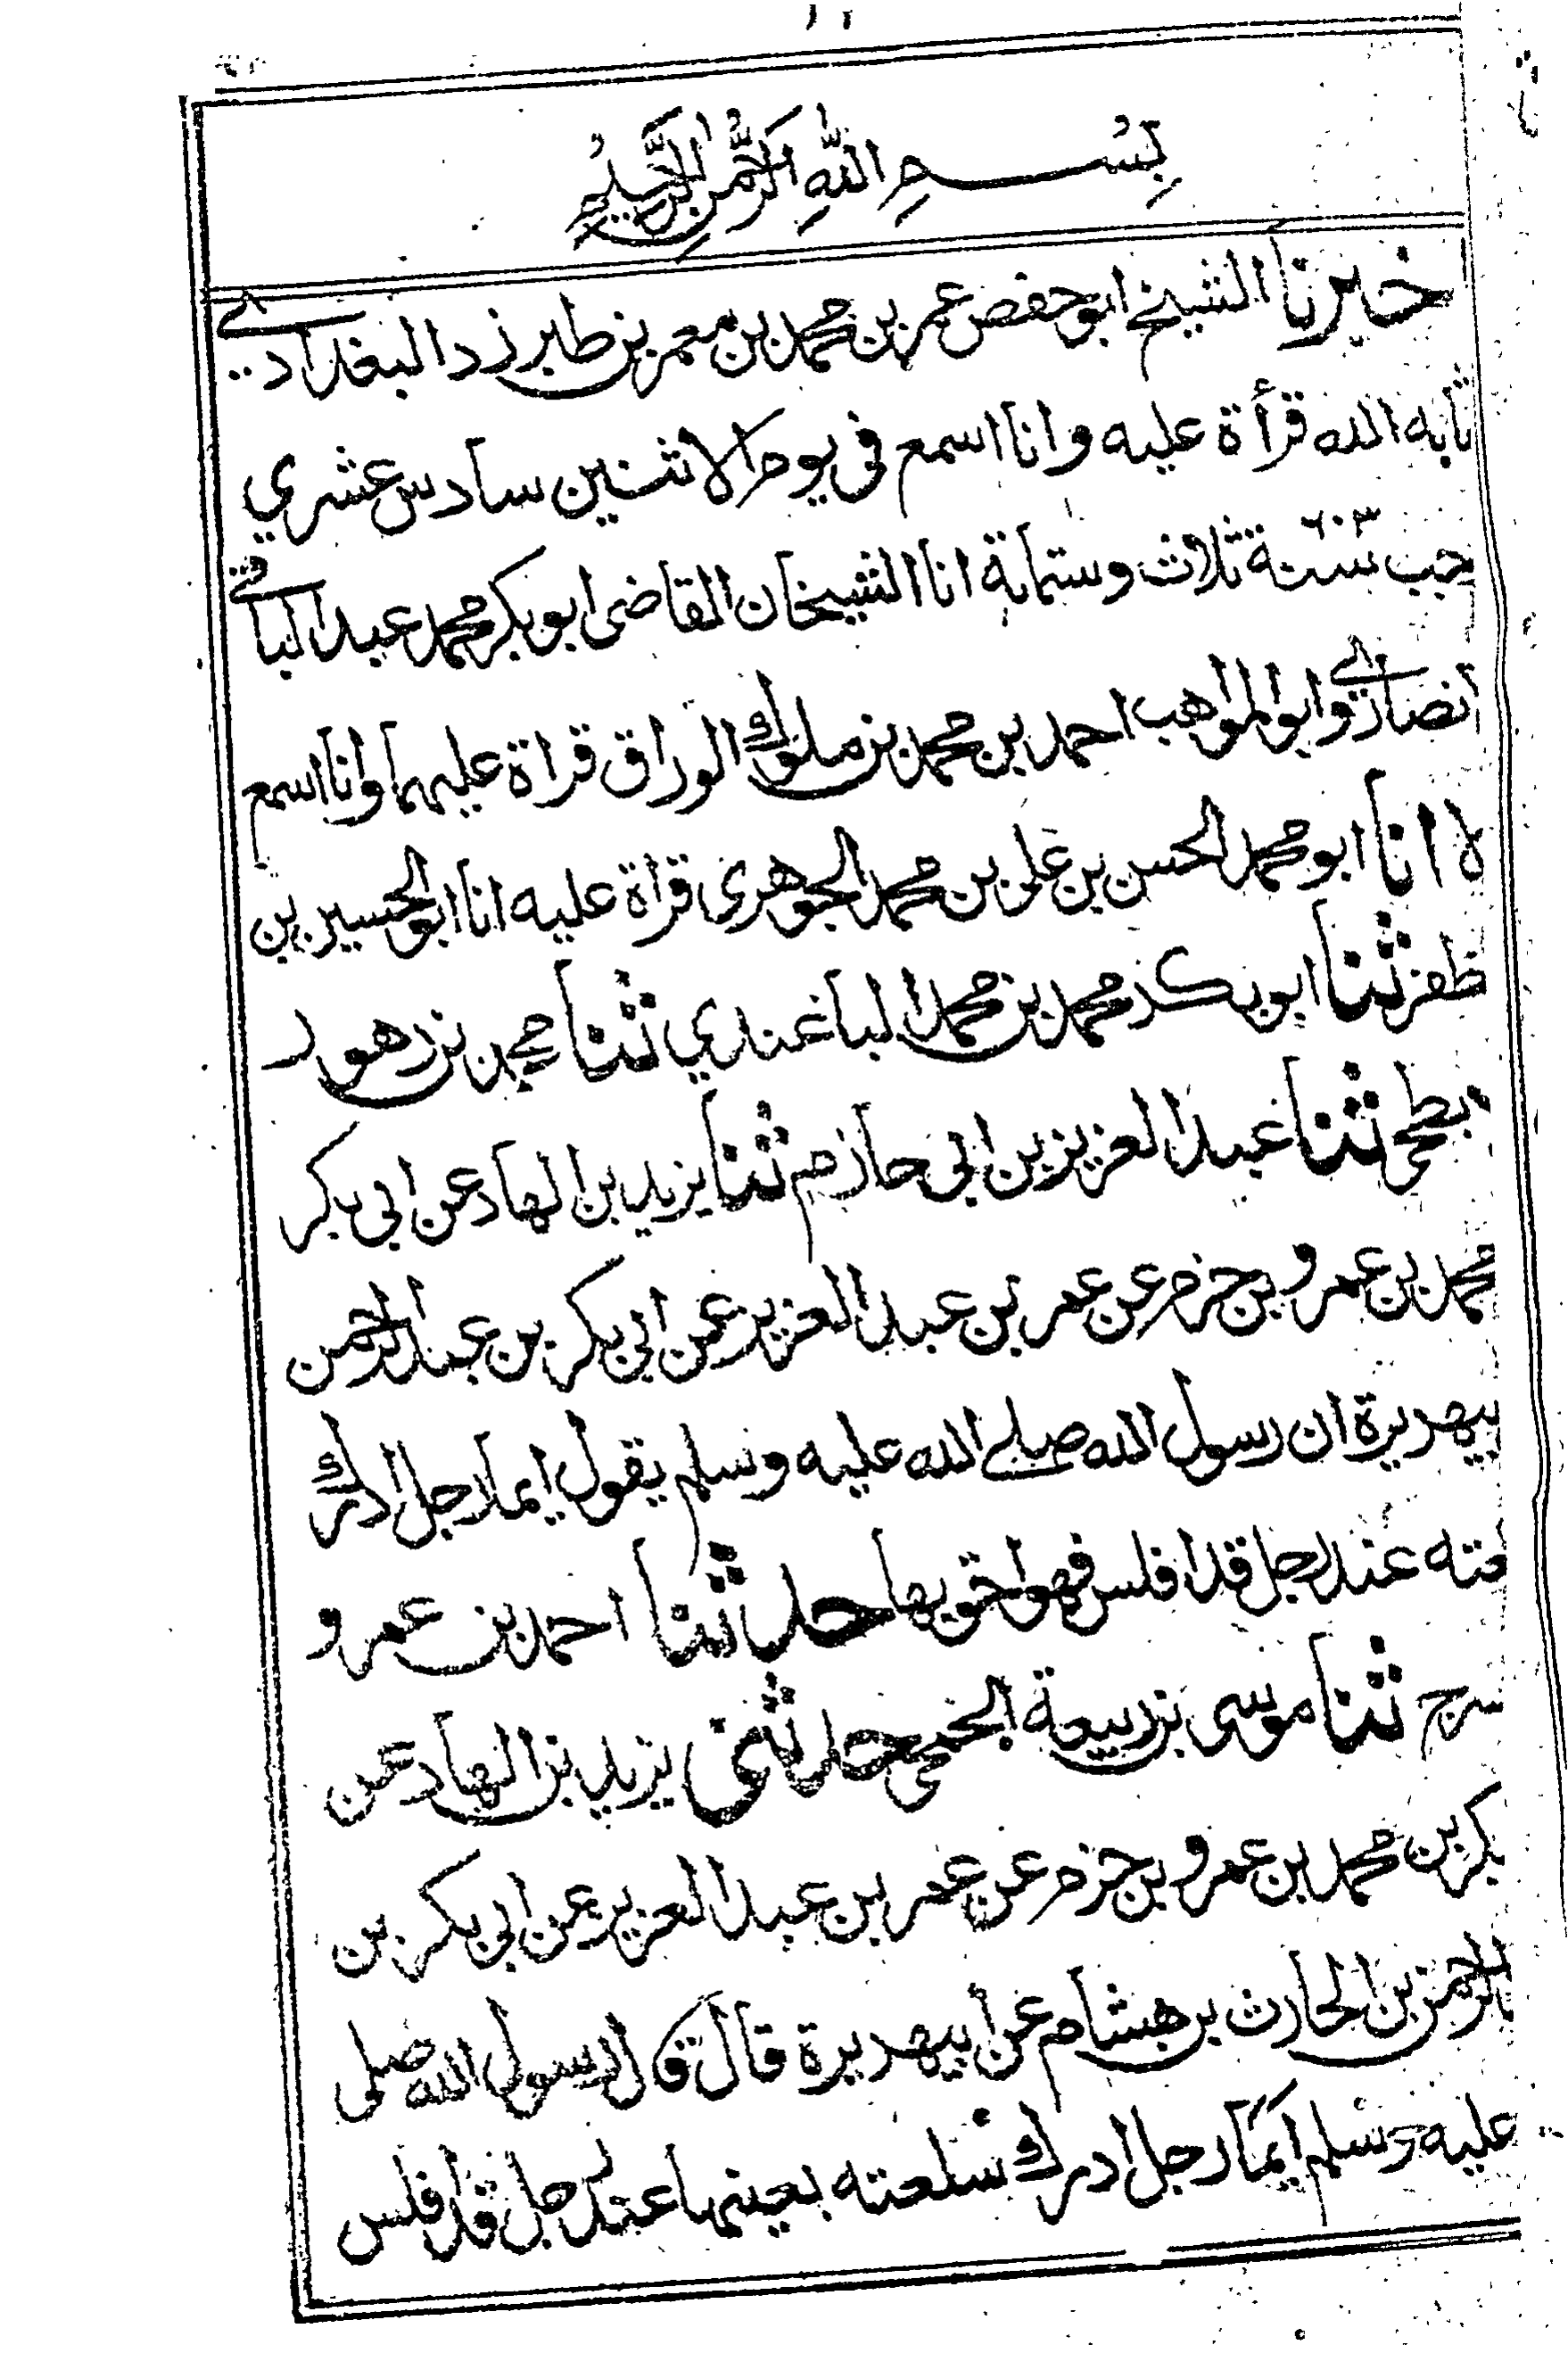 بسم الله الرحمن الرحيم
خبرنا الشيخ ابو حفص عمر بن محمد بن معمر بن طبرزد البغدادي
ثابه الله قرأة عليه وانا اسمع في يوم الاثنين سادس عشري
جب سنة ٦٠٣ ثلاث وستماية انا الشيخان القاضي ابو بكر محمد عبد الباقي
نصاري وابو المواهب احمد بن محمد بن ملوك الوراق قراة عليهما وانا اسمع
لا انا ابو محمد الحسن بن علي بن محمد الجوهري قراة عليه انا ابو الحسين بن
ظفر ثنا ابو بكر محمد بن محمد الباغندي ثنا محمد بن
بطحي ثنا عبد العزيز بن ابي حازم ثنا يزيد بن الهاد عن ابي بكر
محمد بن عمرو بن حزم عن عمر بن عبد العزيز عن ابي بكر بن عبد الرحمن
بيهريرة ان رسول الله صلى الله عليه وسلم يقول ايما رجل ادرك
لعته عند رجل قد افلس فهو احق بها حدثنا احمد بن عمرو
سرح ثنا موسى بن ربيعة الجمحي حدثني يزيد بن الهاد عن
بكر بن محمد بن عمرو بن حزم عن عمر بن عبد العزيز عن ابي بكر بن
الرحمن بن الحارث بن هشام عن أبيهريرة قال قال رسول الله صلى
عليه وسلم أيما رجل ادرك سلعته بعينها عند رجل قد افلس